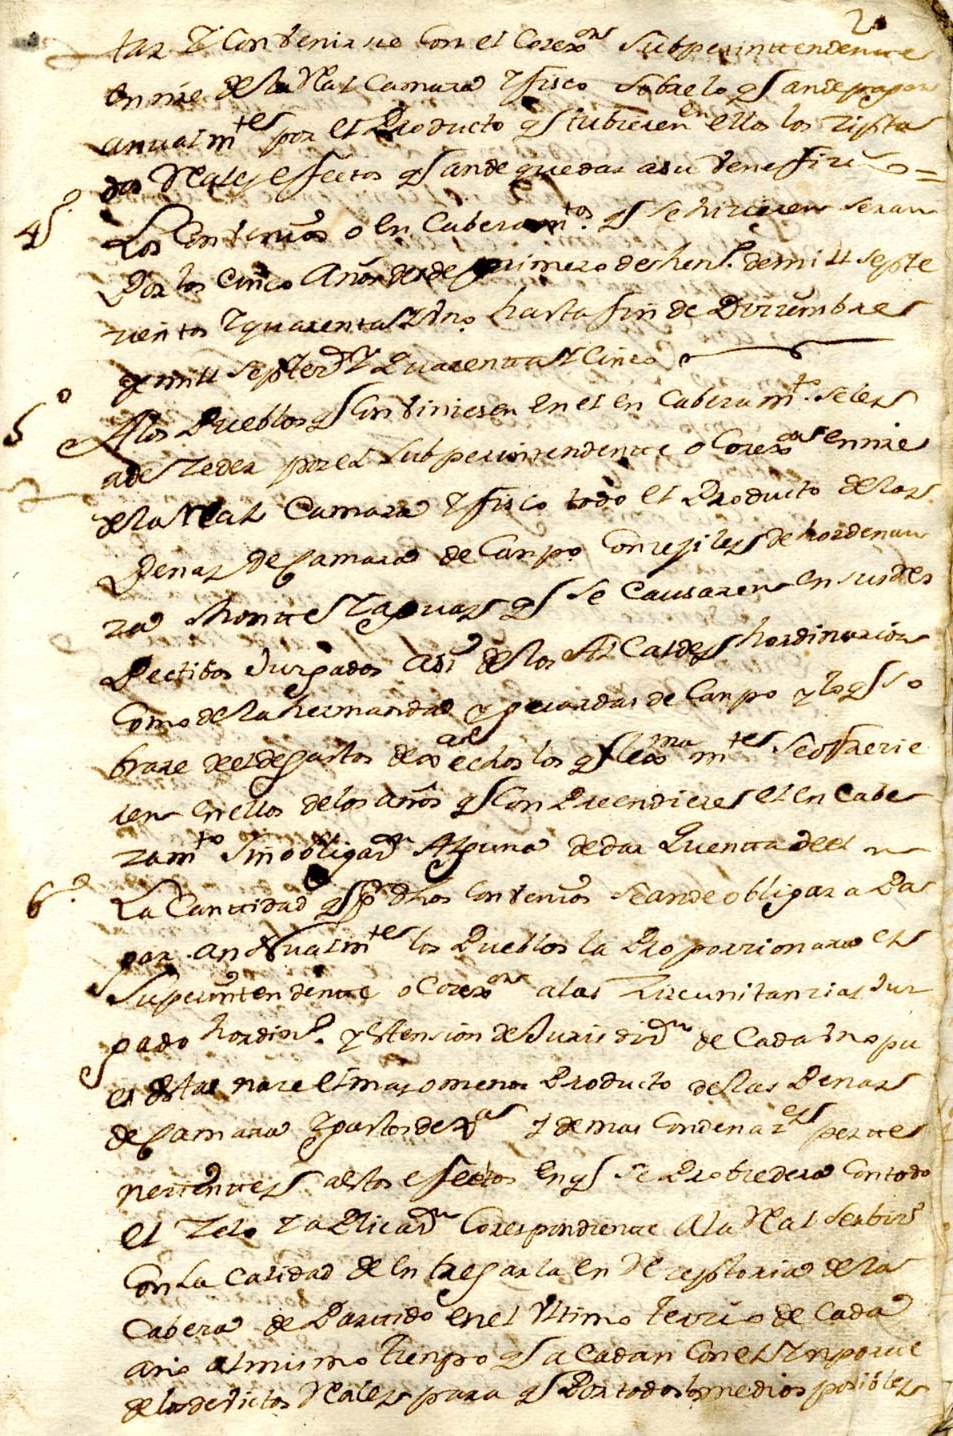 2
tar Y Conbenirse Con el Corex.ores Subperinttendentte
en nre de la Real Camara Y fisco sobre lo qe an de pagar
anualmtes por el Producto qe tubieren en ellos los
Reales effectos qe an de quedar a su beneffizio =
4º Los Conbenios o en Cabezamtos qe se hizieren seran
Por los Cinco Años desde primero de henº de mill septe
zientos Y quarenta Y Vno hasta fin de Diziembre
de mill Septezos Y Quarentta Y Cinco
5º A los Pueblos qe Conbiniesen en el en Cabezamto Se les
a de Zeder por el Subperintendentte o Corexor en nre
de la Real Camara Y fisco todo el Producto de las
Penas de Camara de Canpo Conzejiles de hordenan
za Montte Y aguas qe se Causaren en sus Res
Pectibos Juzgados asi de los Alcaldes hordinarios
Como de la hermandad y guardas de Canpo y lo qe so
brare de el de gastos de los qe lexitmamtes Se offrezie
ren en ellos de los años qe Conpreendiere el en Cabe
zamto Sin obligazon Alguna de dar Quentta de el
6º La Canttidad qe pr dhos Conbenios se an de obligar a Pa
gar anualmtes los Pueblos la Proporzionara el
Superinttendentte o Corexor a las Zircunstanzias Juz
gado hordiº y Estension de Jurisdizon de Cada Vno pu
es de estas naze el mas o menos Producto de las Penas
de Camara Y gastos de Y demas Condenazes pertte
nezienttes a estos effectos en qe se Prozedera Con todo
el Zelo Y aplicazon Correspondiente A la Real Serbizº
Con la Calidad de Entregarla en Rezeptoria de la
Cabeza de Parttido en el Vltimo terzio de Cada
año al mismo tienpo qe acadan Con el Ynporte
de los deBitos Reales para qe Por todos los medios posibles